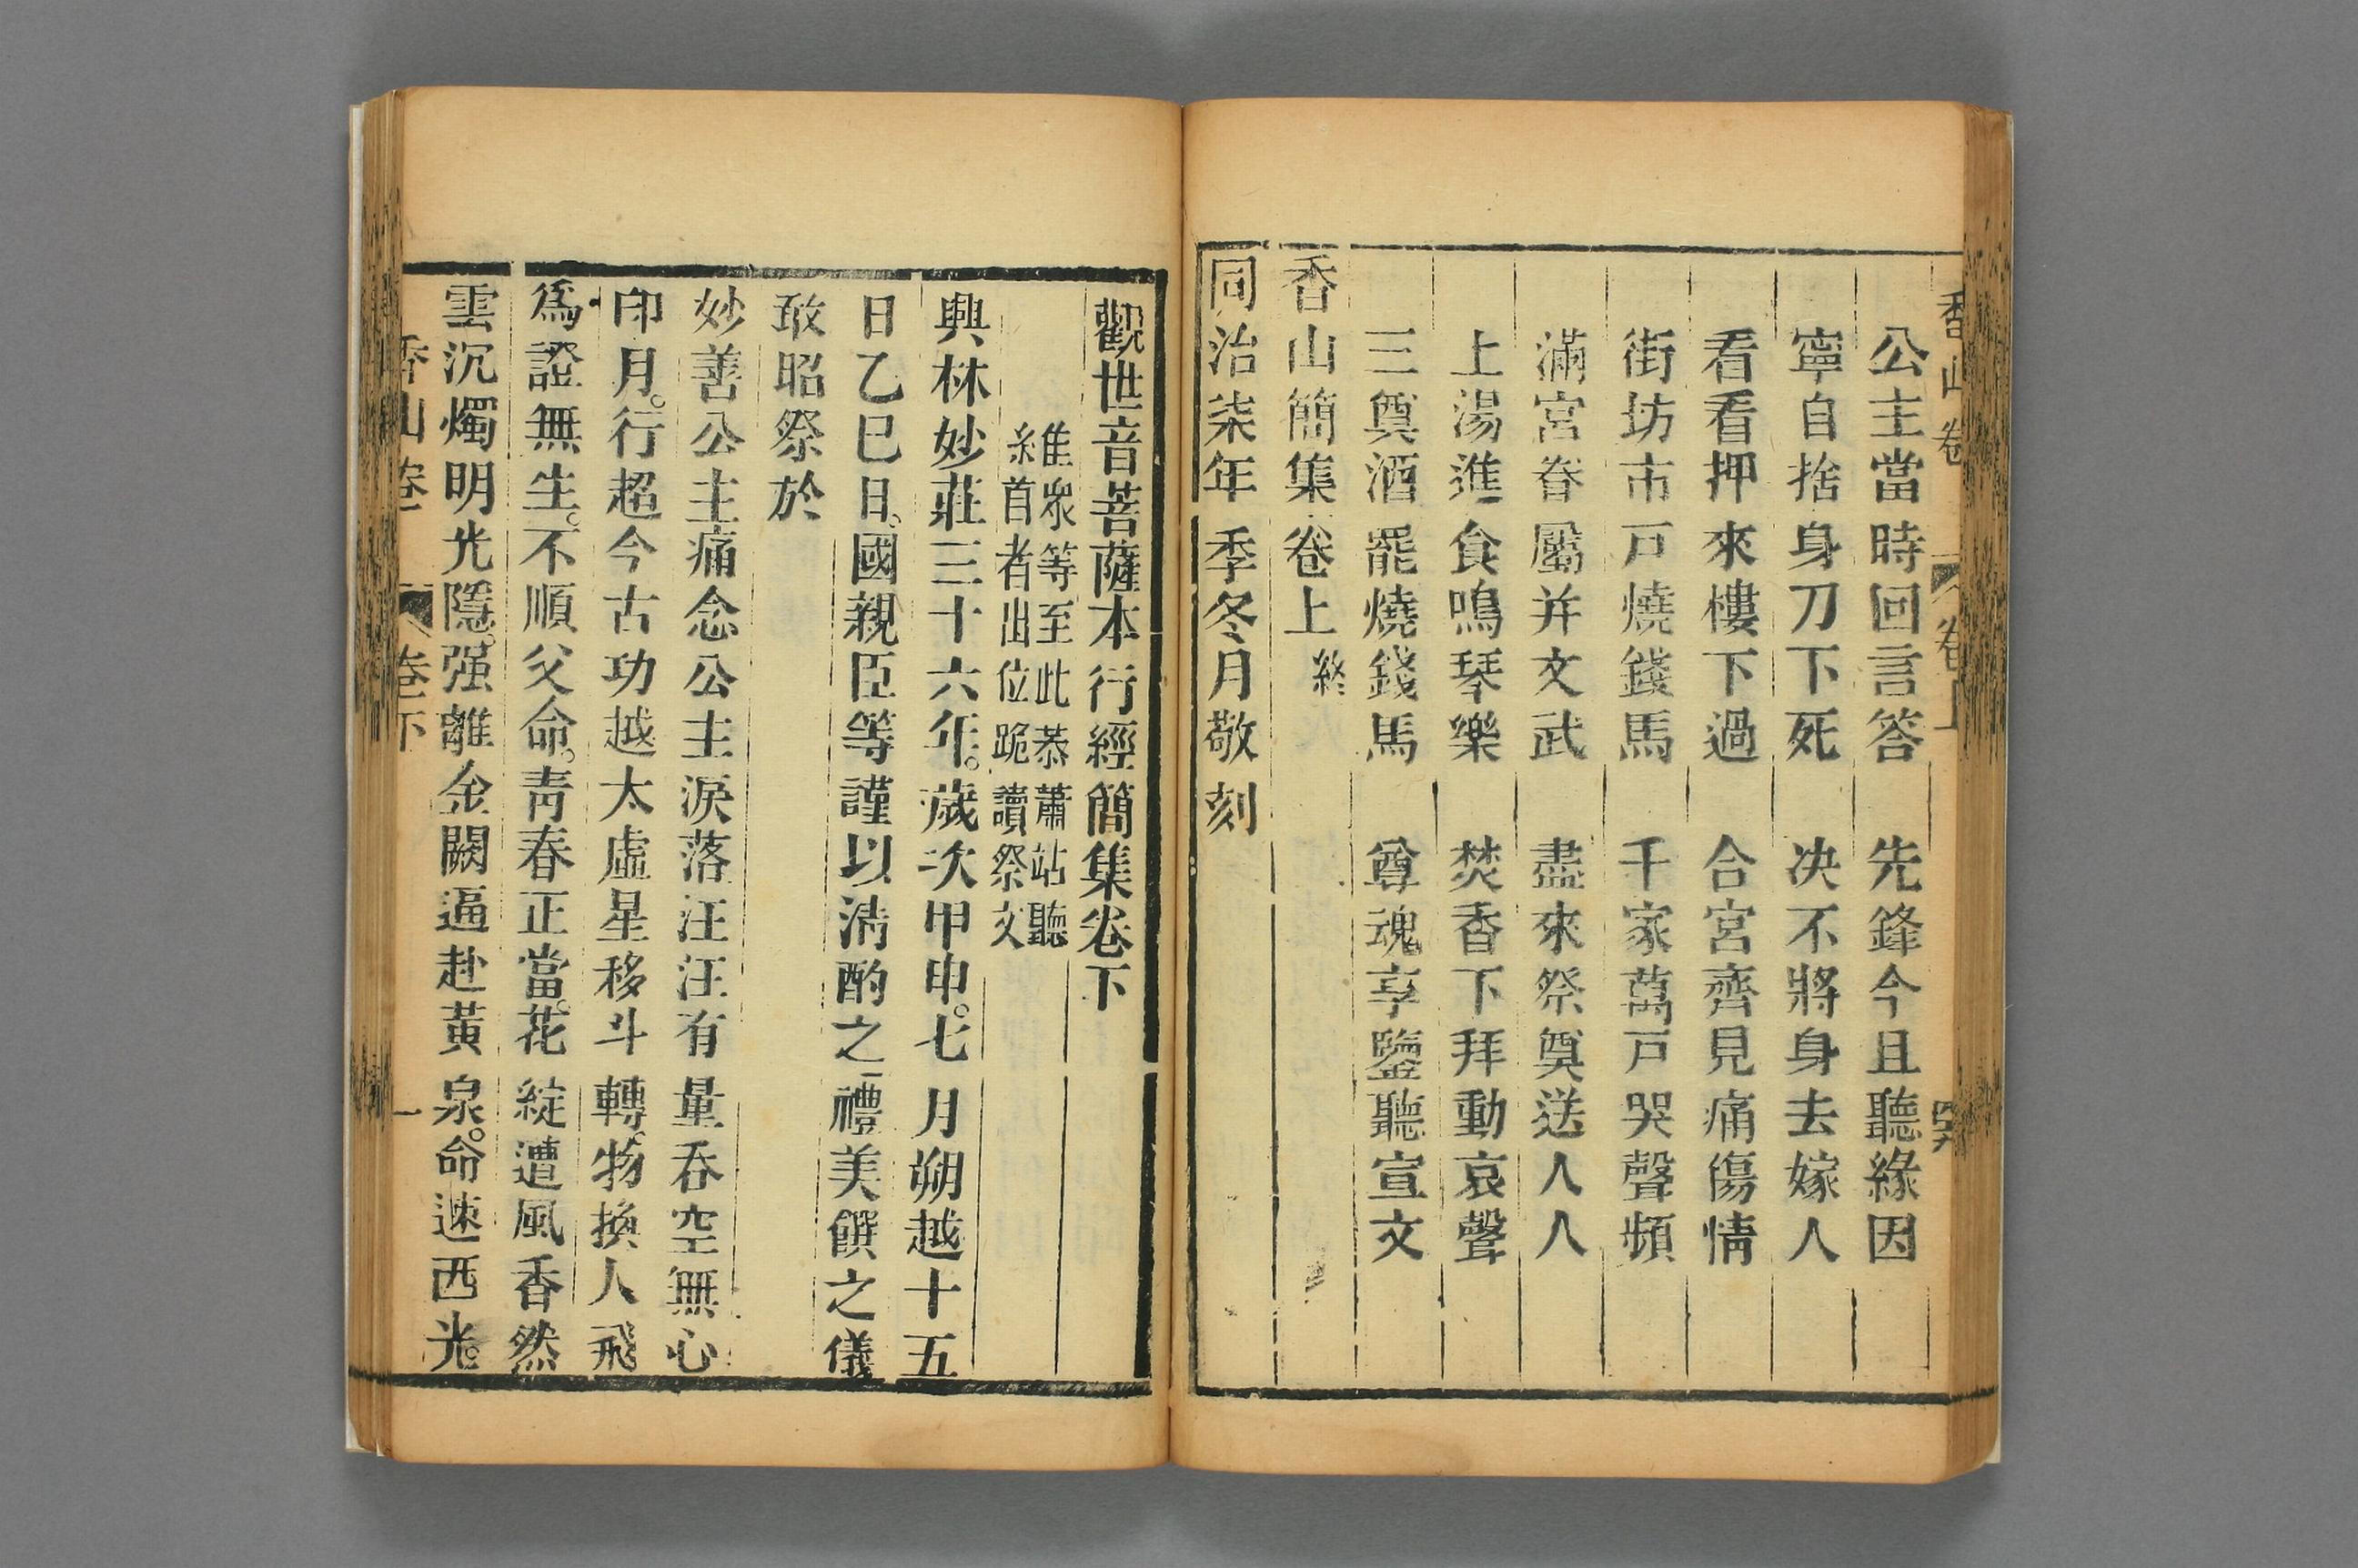 香山卷 卷上
公主當時回言答 先鋒今且聽緣因
寧自捨身刀下死 决不將身去嫁人
看看押來樓下過 合宮齊見痛傷情
街坊市戸燒錢馬 千家萬戸哭聲頻
滿宮眷屬并文武 盡來祭奠送人人
上湯進食鳴琴樂 焚香下拜動哀聲
三奠酒罷燒錢馬 尊魂享鑒聽宣文
香山簡集卷上終
同治柒年季冬月敬刻
觀世音菩薩本行經簡集卷下
維衆等至此恭肅站聽
維首者出位跪讀祭文
興林妙莊三十六年。歲次甲申。七月朔越十五
日乙巳日。國親臣等謹以清酌之禮美饌之儀
敢昭祭於
妙善公主痛念公主淚落汪汪有量吞空無心
印月。行超今古功越太虛星移斗轉。物換人飛
爲證無生。不順父命。靑春正當。花綻遭風香然
雲沉燭明光隱。强離金闕逼赴黃泉。命速西光。
香山卷 卷下 一